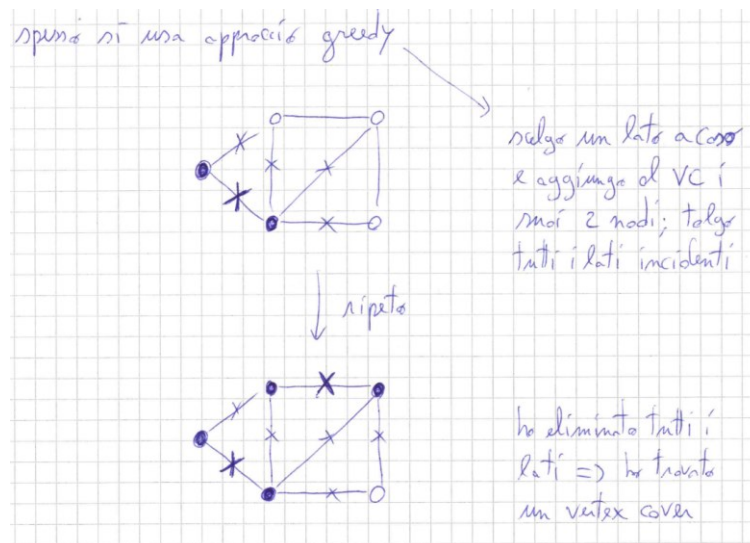 spesso si usa approccio greedy
scelgo un lato a caso
e aggiungo al VC i
suoi 2 nodi; tolgo
tutti i lati incidenti
ripeto
ho eliminato tutti i
lati => ho trovato
un vertex cover